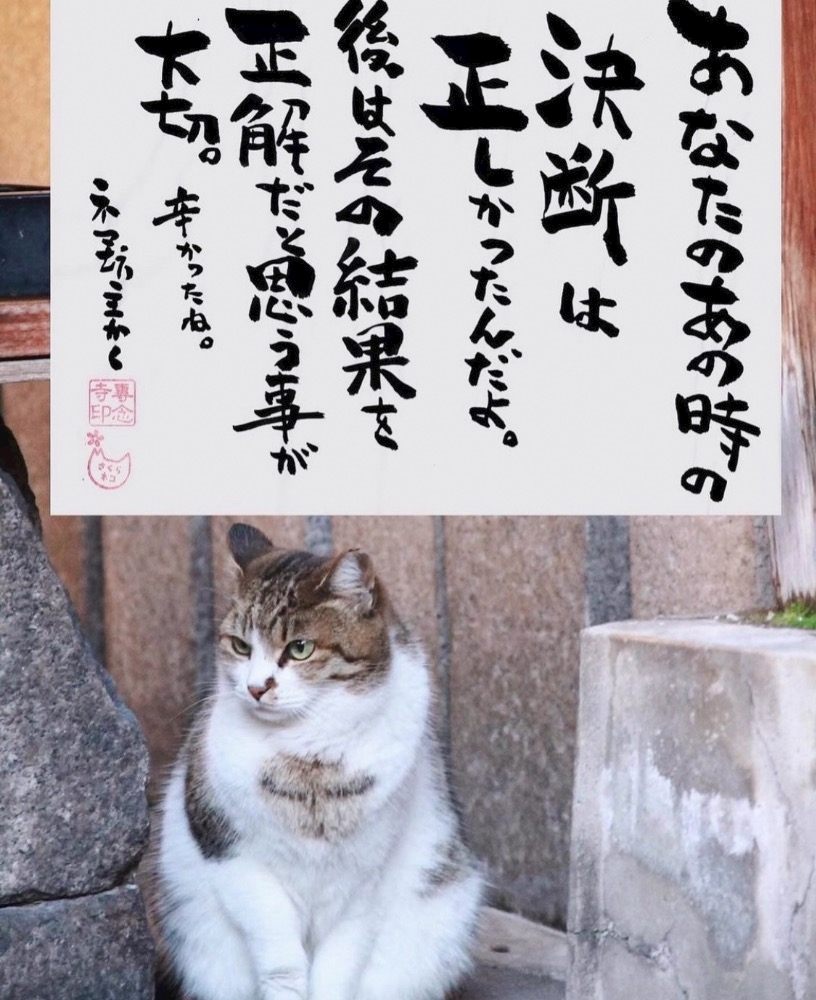 あなたのあの時の
決断は
正しかったんだよ。
後はその結果を
正解だと思う事が
大切。
幸かったね。
専念
寺印
さくら
ネコ